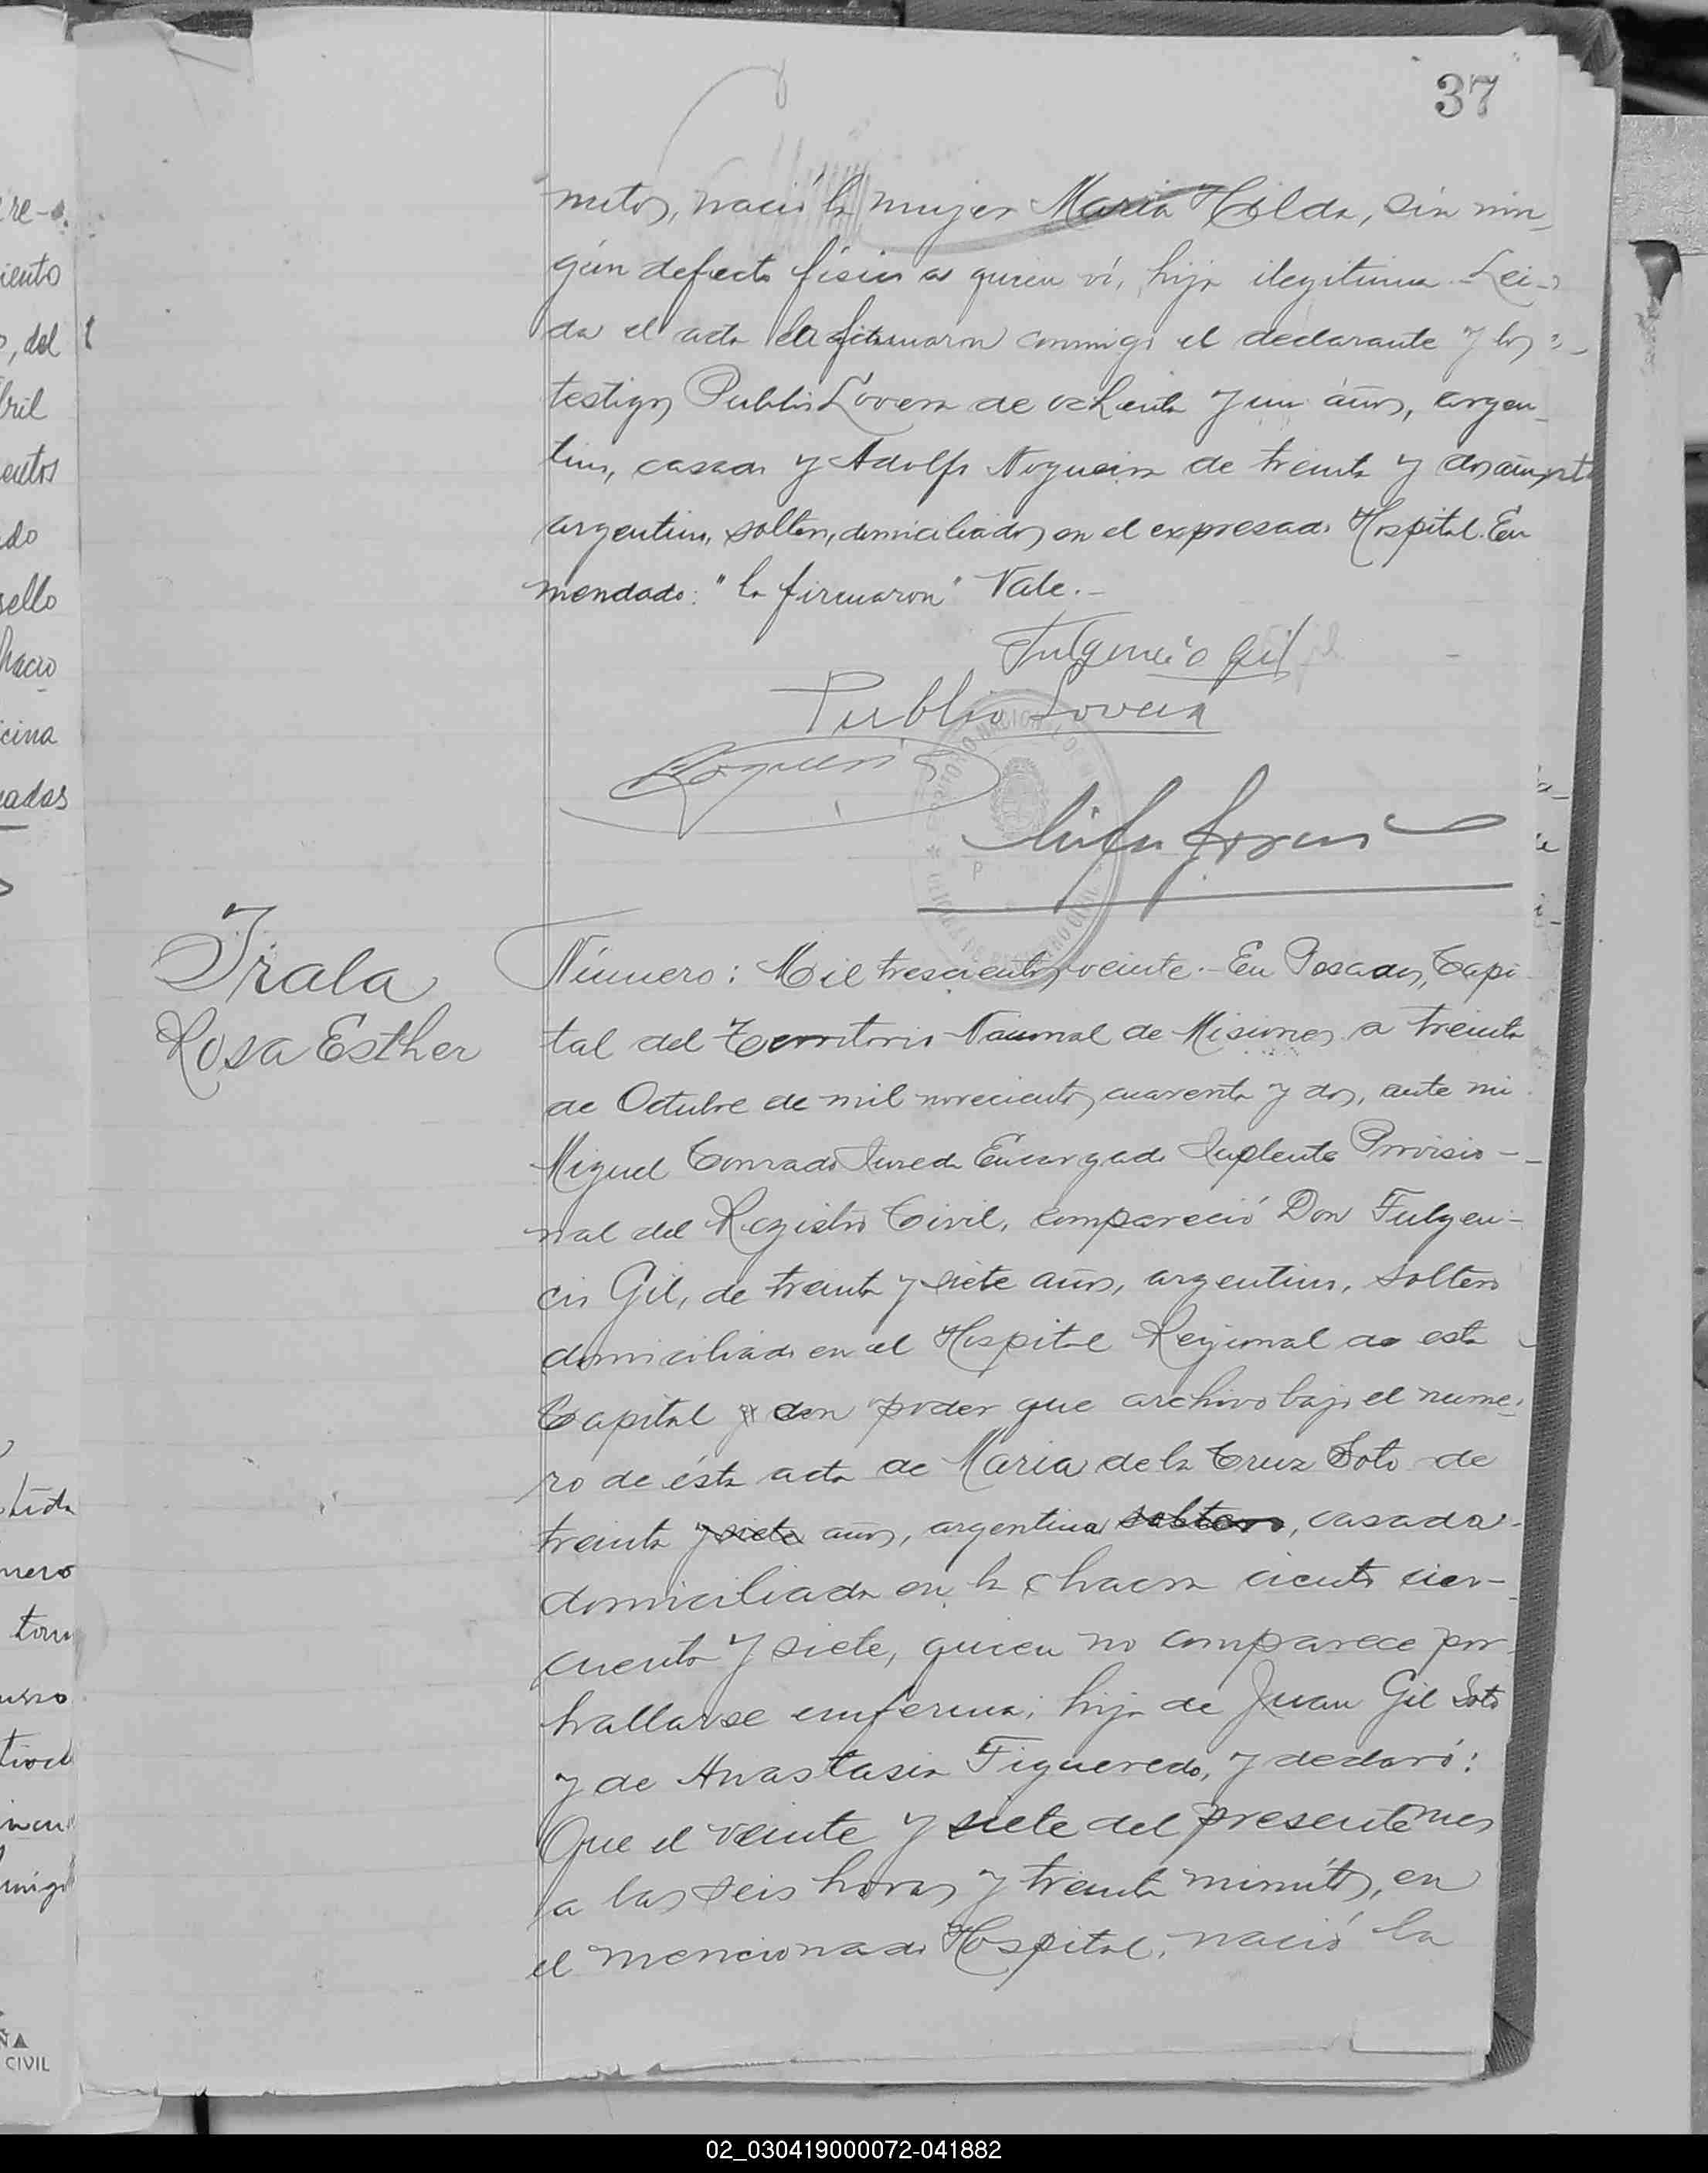 37
nutos, nació la mujer Maria Hilda, sin nin_
gún defecto físico a quien ví, hija ilegitima. Lei_
da el acta la firmaron conmigo el declarante y los
testigos Publio Lovera de ochenta y un años, argen_
tino, casado y Adolfo Nogueira de treinta y dos años
argentino, soltero, domiciliados en el expresado Hospital. En
mendado: "la firmaron" Vale._
Fulgencio Gil
Publio Lovera
Irala
Rosa Esther
Número: Mil trescientos veinte.- En Posadas, Capi
tal del Territorio Nacional de Misiones a treinta
de Octubre de mil novecientos cuarenta y dos, ante mi
Miguel Conrado Encargado Suplente Provisio-
nal del Registro Civil, compareció Don Fulgen-
cio Gil, de treinta y siete años, argentino, soltero
domiciliado en el Hospital Regional de esta
Capital con poder que archivo bajo el nume-
ro de ésta acta de Maria de la Cruz Soto de
treinta y siete años, argentina soltero, casada
domiciliada en la chacra ciento cin-
cuenta y siete, quien no comparece por
hallarse enferma; hija de Juan Gil Soto
y de Anastasia Figueredo, y declaró:
Que el veinte y siete del presente mes
a las seis horas y treinta minutos, en
el mencionado Hospital, nació la
re-
iento
, del
bril
entos
do
sello
cina
adas
nero
CIVIL
02_030419000072-041882